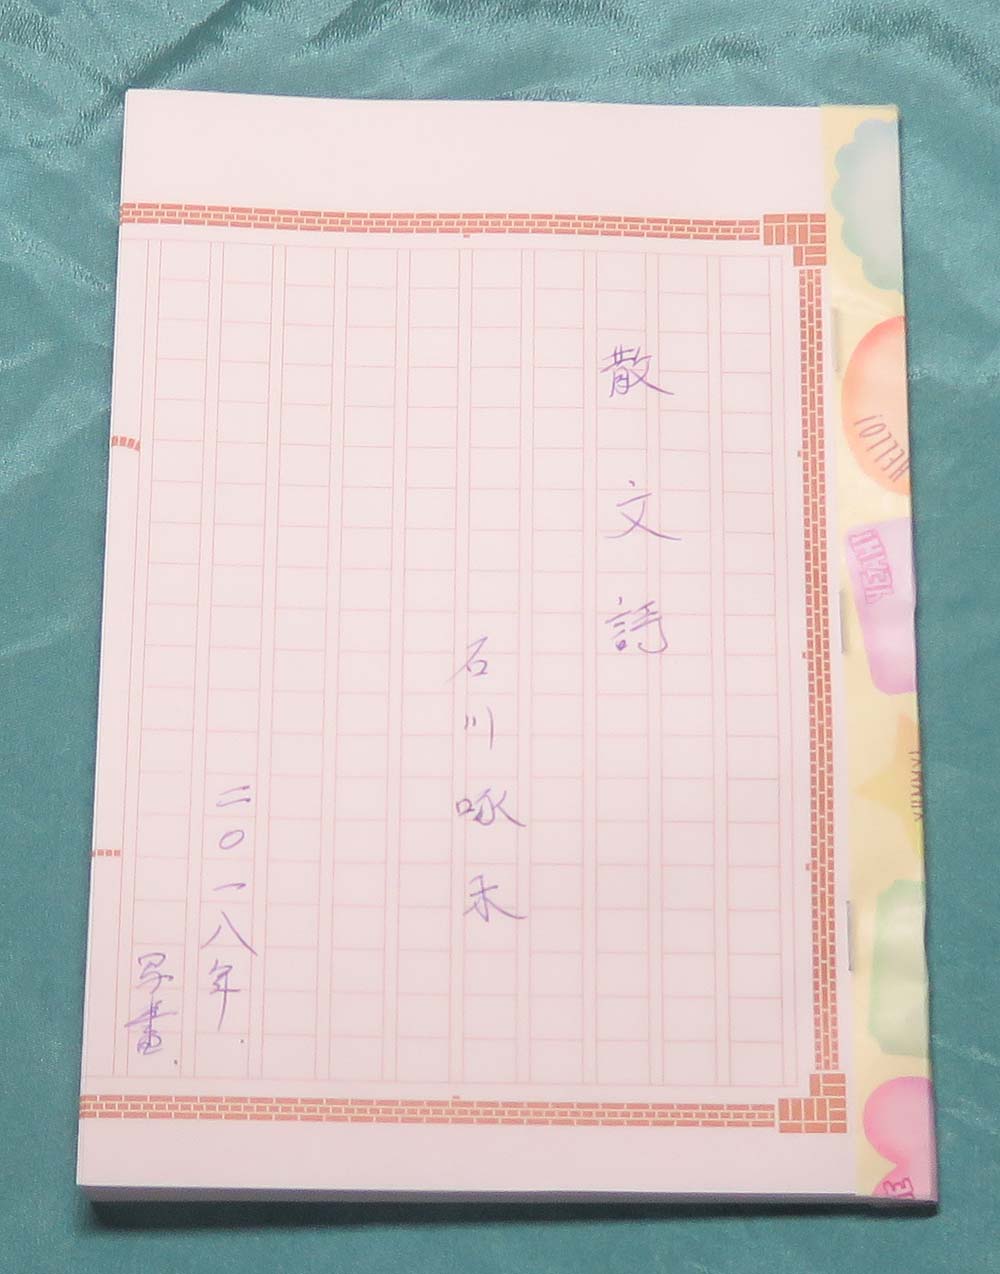 散文詩
石川啄木
二〇一八年
写書
HELLO!
YEAH!
YUMMY!